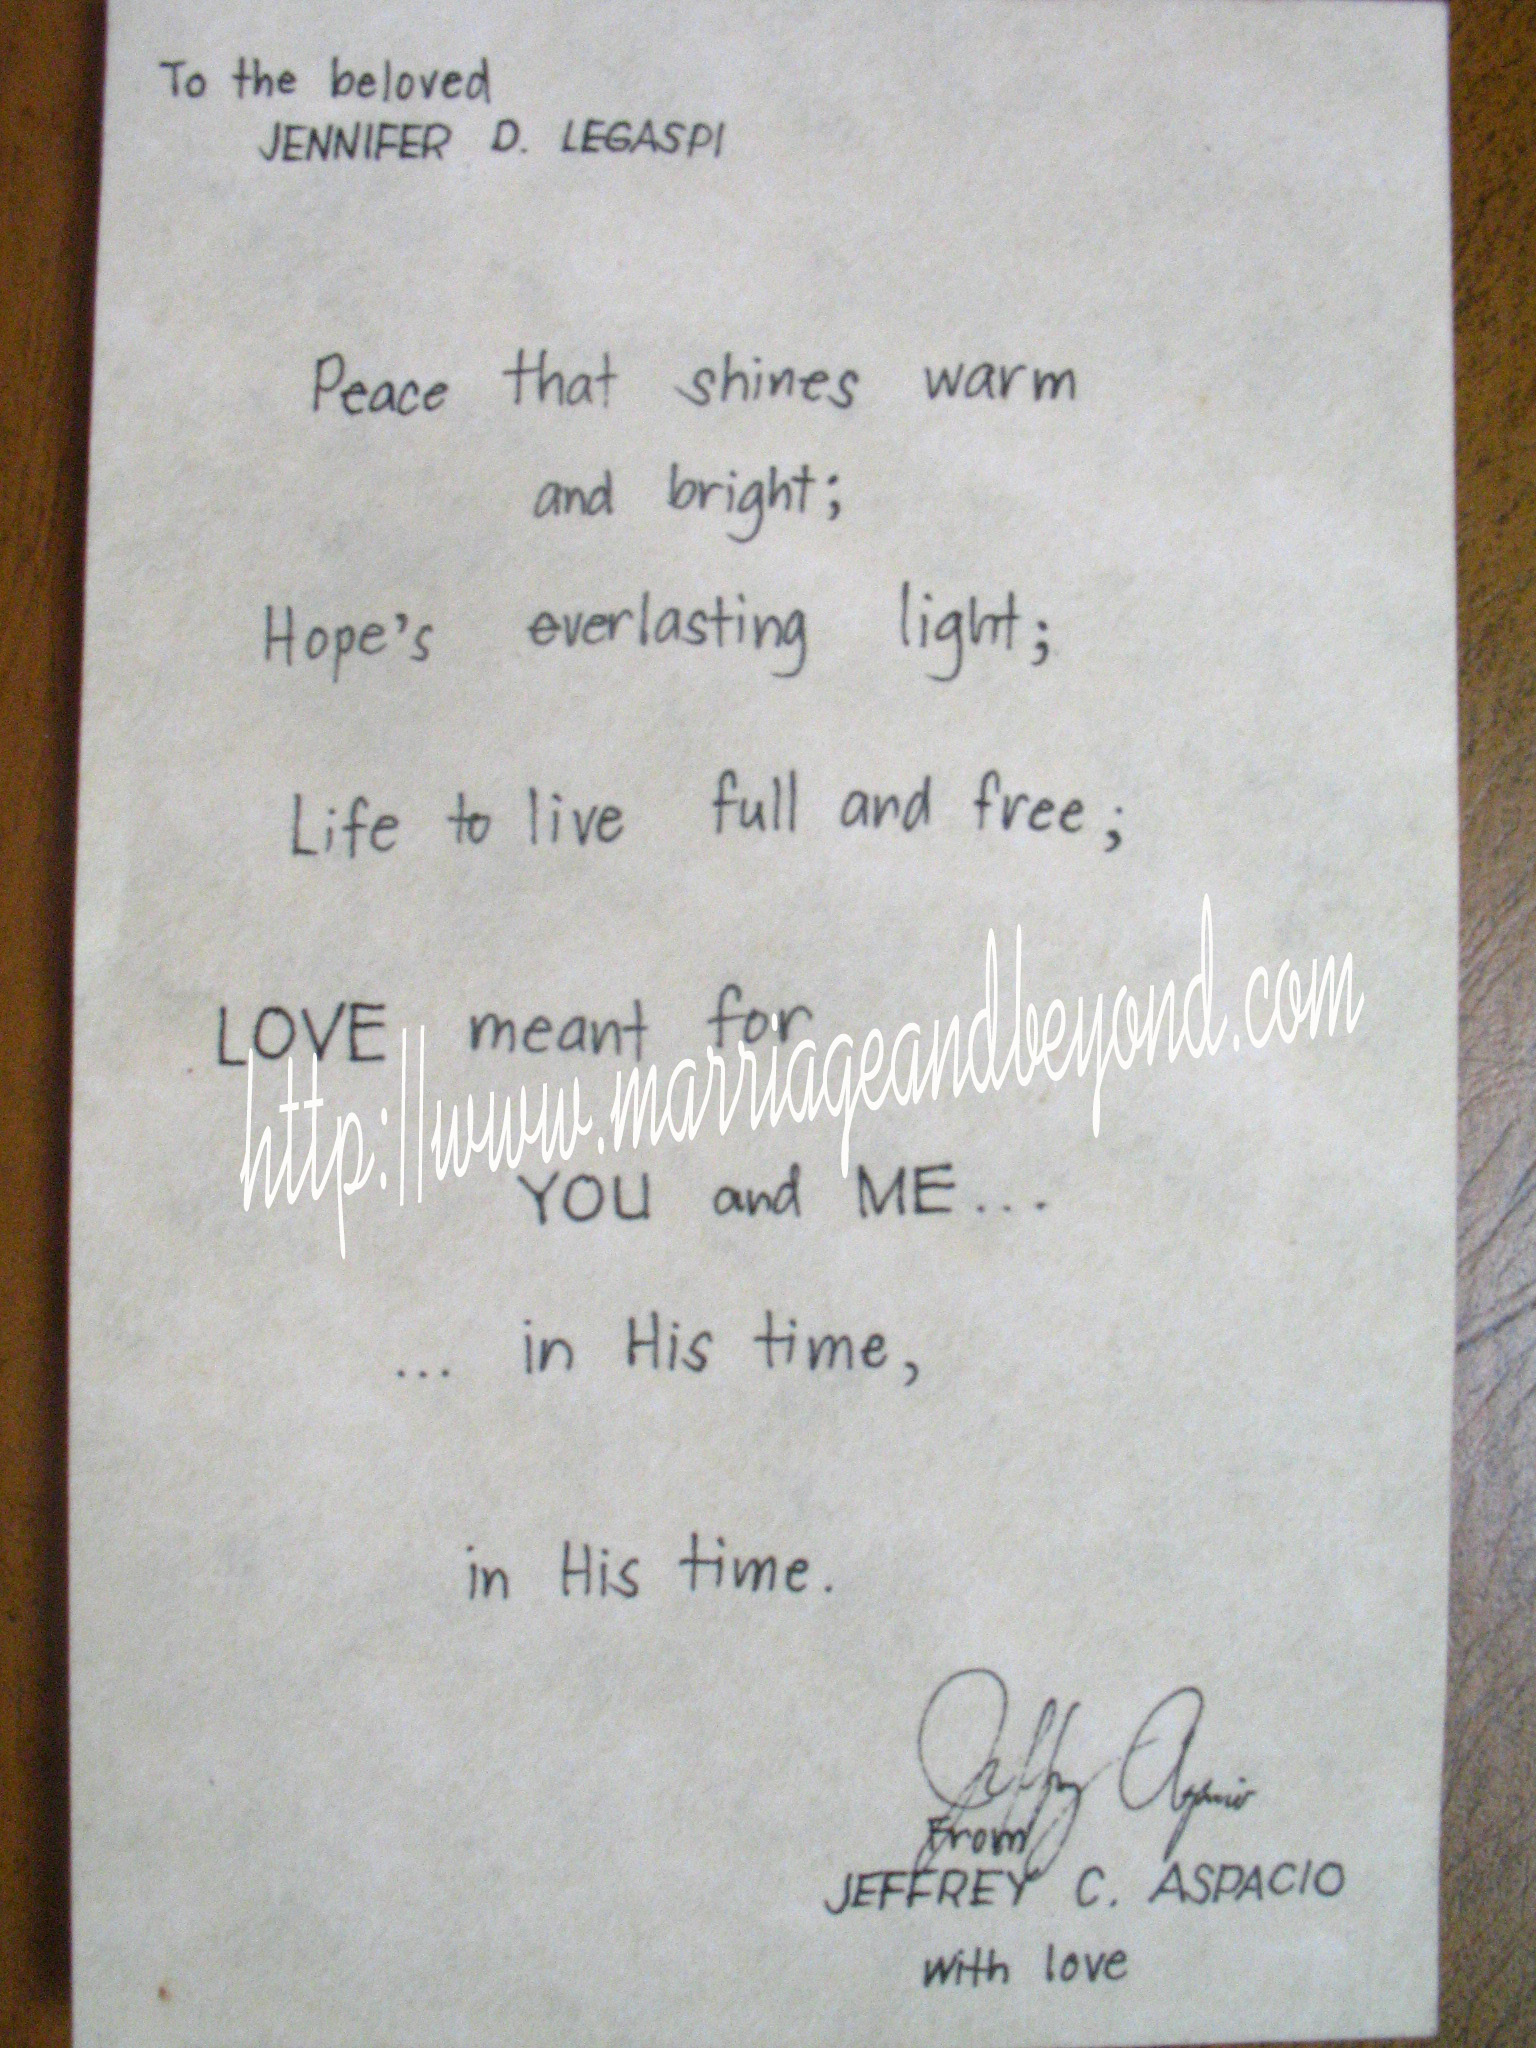 To the beloved
JENNIFER D. LEGASPI
Peace that shines warm
and bright;
Hope's everlasting light;
Life to live full and free;
LOVE meant for
http://www.marriageandbeyond.com
YOU and ME...
... in His time,
in His time.
Jeffrey Aspacio
From
JEFFREY C. ASPACIO
with love